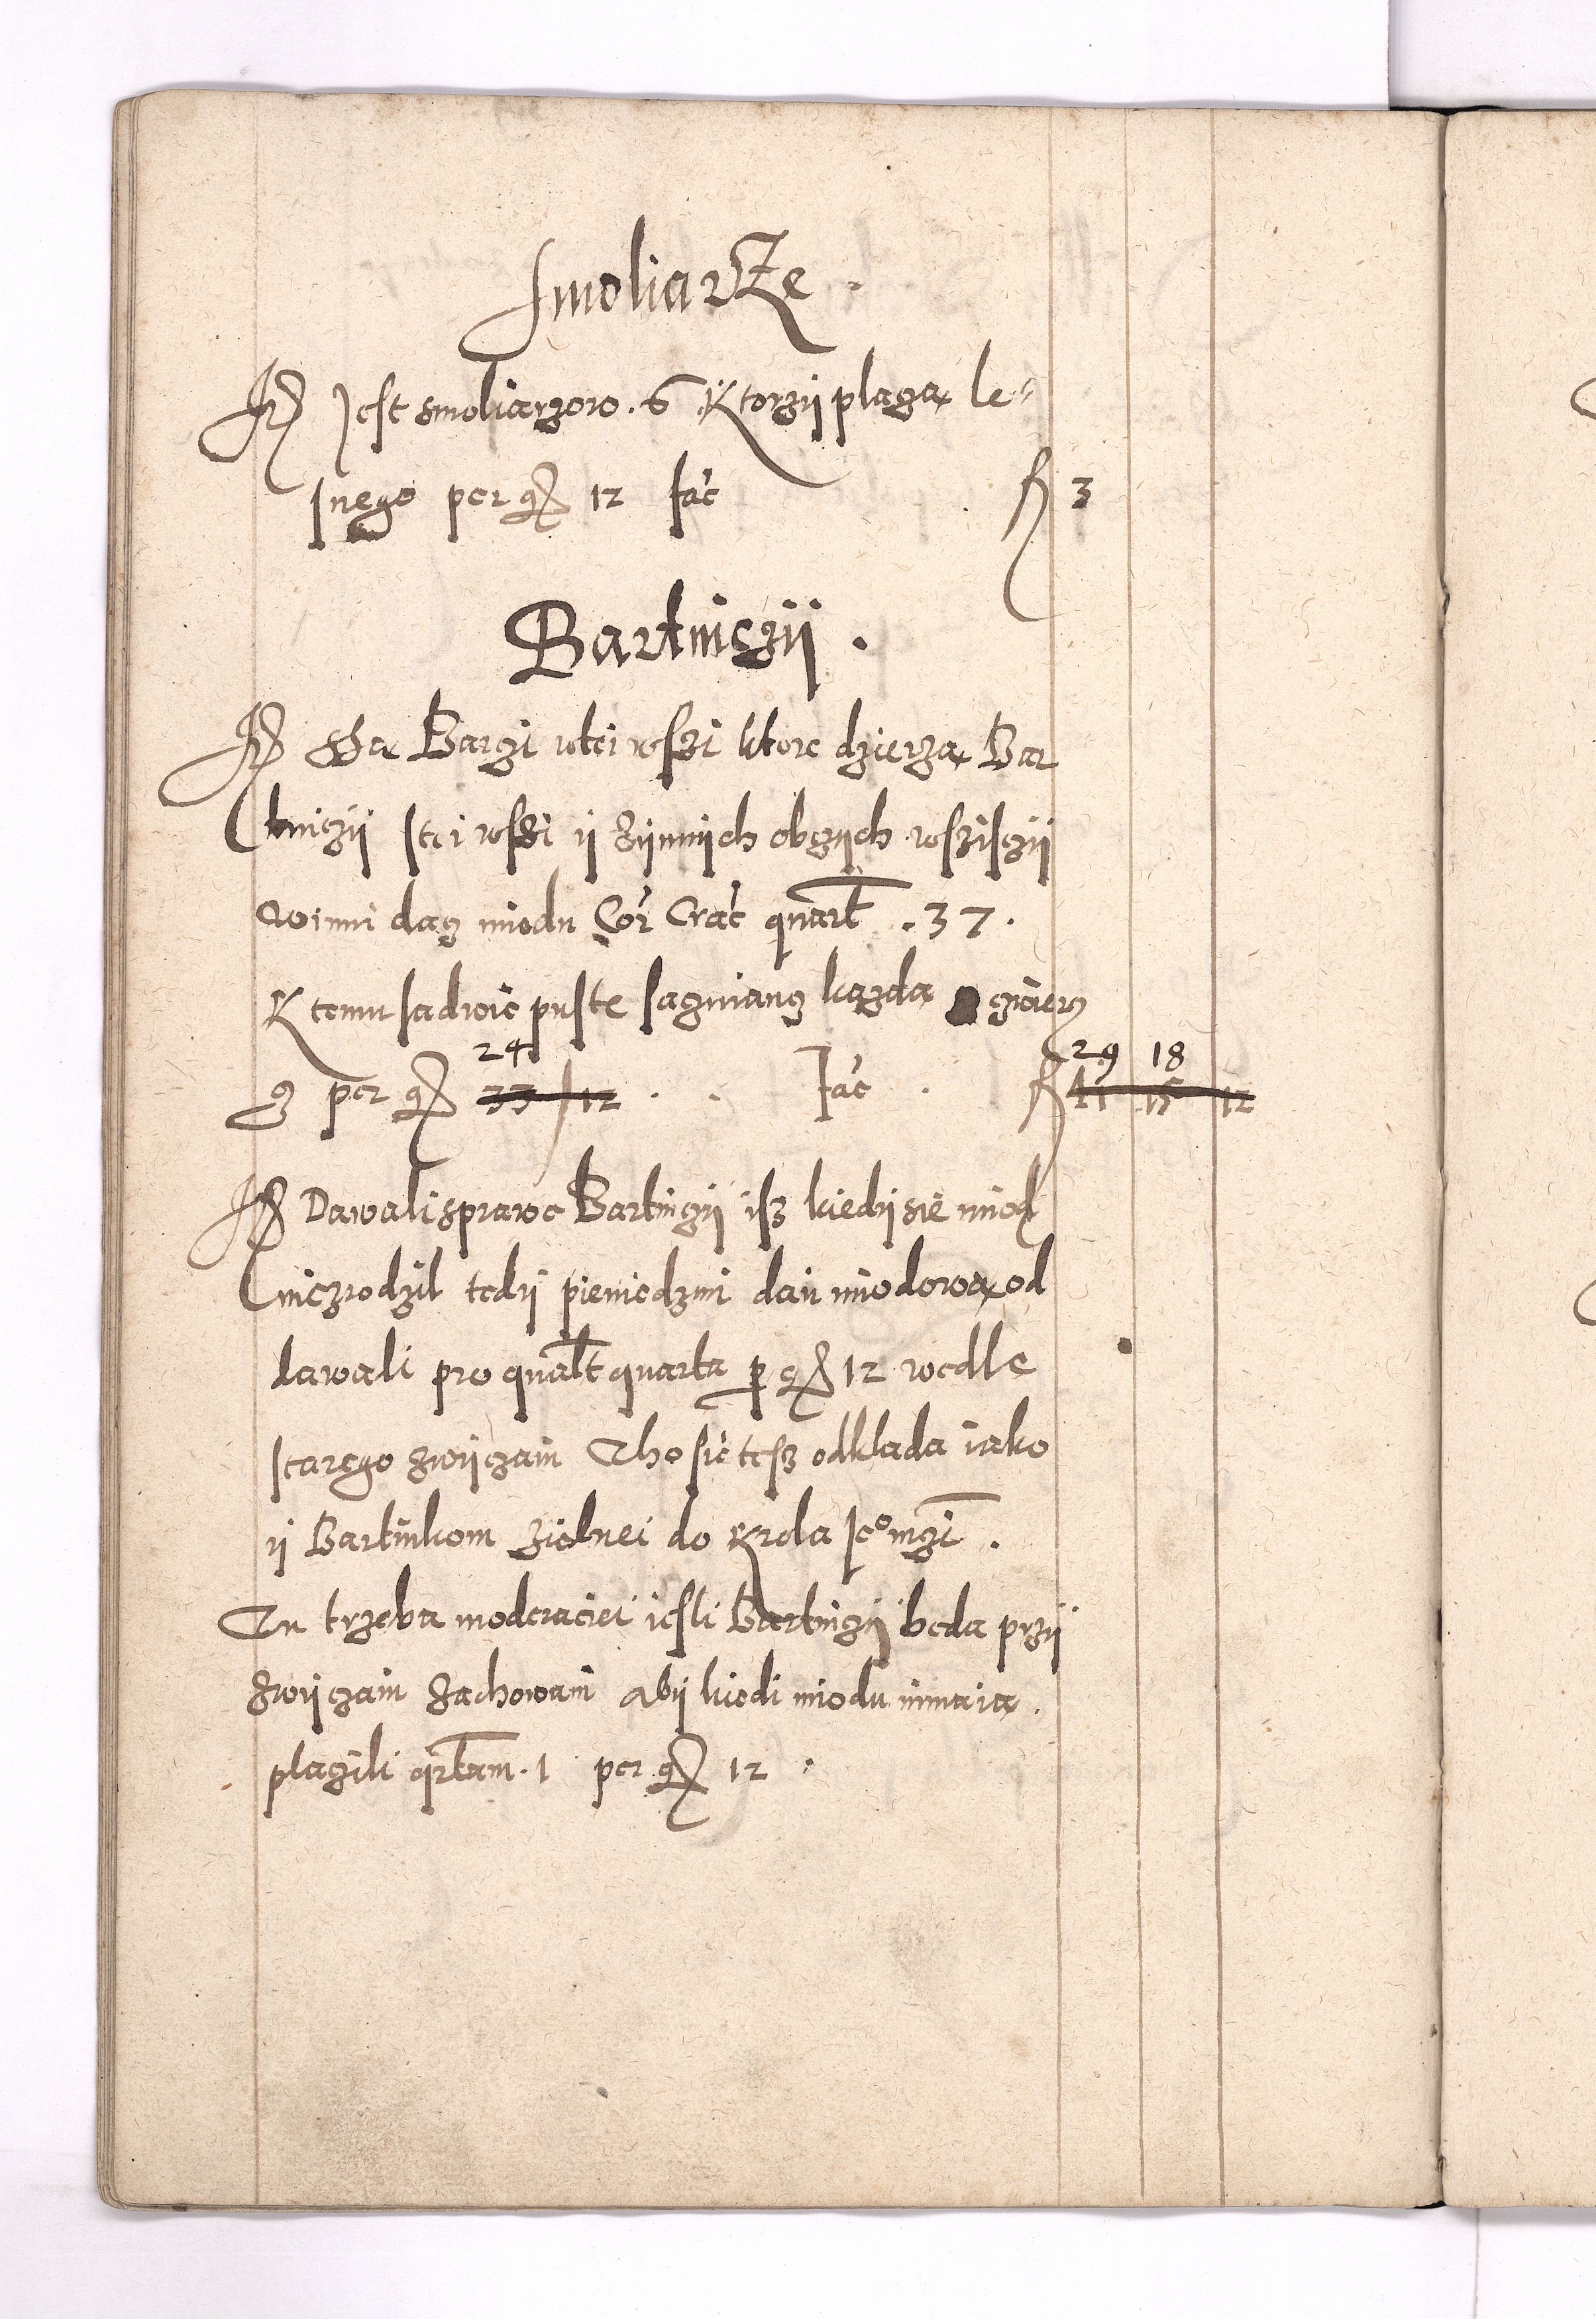 SmoliarZe .
It Jest smoliarzow . 6 Ktorzÿ placza le=
snego per gr 12 fac̃ fl 3
Bartniczÿ .
It SSa Barzi wtei wsszi ktore dzierza Bar
tniczÿ stei wsszi ÿ zÿnnÿch obczÿch wszisczÿ
winni dacz miodu Cor Crac̃ quart . 37 .
K temu sadwie puste sacznianę kazda
ę per gr 24 33/12 . . fac̃ . fl 29 18 41 15 12
It Dawali sprawe Bartniczÿ isz kiedÿ sie miod
niezrodzil tedÿ pieniedzmi dan miodowa od
dawali pro qualt quarta p gr 12 wedle
starego zwÿczain Tho sie tesz odklada iako
ÿ Bartnikom zielnei do Krola Jeº mczi .
Tu trzeba moderaciei iesli Bartniczÿ beda przÿ
zwÿczain zachowani abÿ kiedi miodu nimaia .
placzili qrtam . 1 per gr 12 .